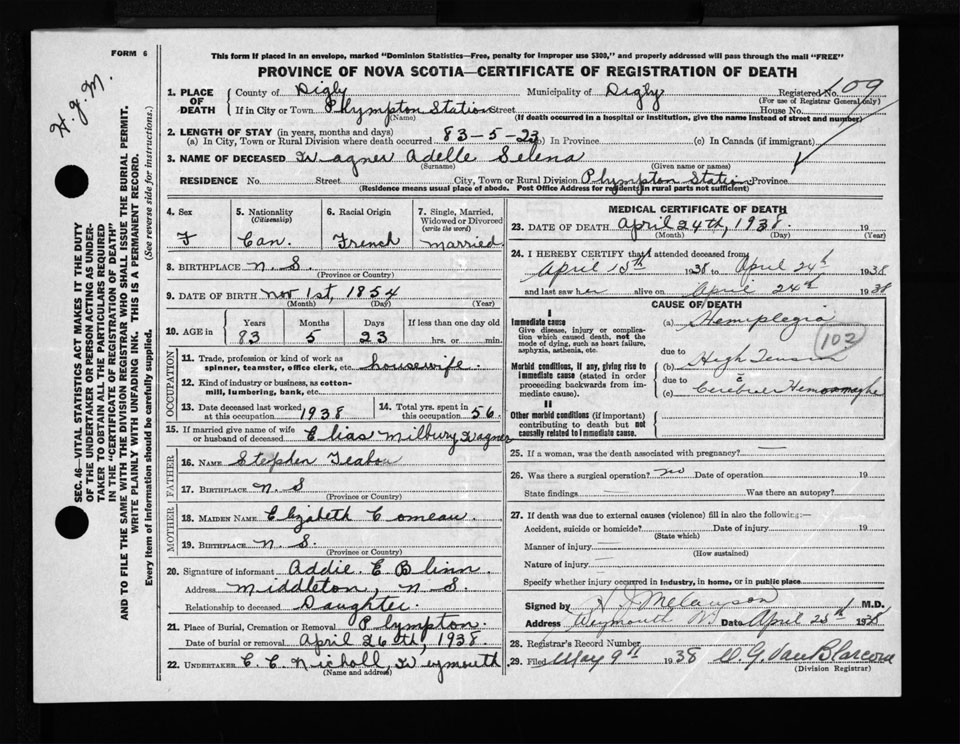 FORM 6
This form if placed in an envelope, marked "Dominion Statistics—Free, penalty for improper use $300," and properly addressed will pass through the mail "FREE"
PROVINCE OF NOVA SCOTIA—CERTIFICATE OF REGISTRATION OF DEATH
H. J. M.
SEC. 46—VITAL STATISTICS ACT MAKES IT THE DUTY
OF THE UNDERTAKER OR PERSON ACTING AS UNDER-
TAKER TO OBTAIN ALL THE PARTICULARS REQUIRED
IN THE "CERTIFICATE OF REGISTRATION OF DEATH"
AND TO FILE THE SAME WITH THE DIVISION REGISTRAR WHO SHALL ISSUE THE BURIAL PERMIT.
WRITE PLAINLY WITH UNFADING INK. THIS IS A PERMANENT RECORD.
Every item of information should be carefully supplied. (See reverse side for instructions.)
1. PLACE OF DEATH County of Digby Municipality of Digby Registered No. 109
(For use of Registrar General only)
If in City or Town Plympton Station Street House No.
(Name) (If death occurred in a hospital or institution, give the name instead of street and number)
2. LENGTH OF STAY (in years, months and days)
(a) In City, Town or Rural Division where death occurred 83-5-23 (b) In Province (c) In Canada (if immigrant)
3. NAME OF DECEASED Wagner Adelle Selena
(Surname) (Given name or names)
RESIDENCE No. Street City, Town or Rural Division Plympton Station Province
(Residence means usual place of abode. Post Office Address for residents in rural parts not sufficient)
4. Sex 5. Nationality (Citizenship) 6. Racial Origin 7. Single, Married, Widowed or Divorced (write the word)
F Can. French Married
8. BIRTHPLACE N. S.
(Province or Country)
9. DATE OF BIRTH Nov 1st, 1854
(Month) (Day) (Year)
10. AGE in Years Months Days If less than one day old
83 5 23 hrs. or min.
OCCUPATION
11. Trade, profession or kind of work as spinner, teamster, office clerk, etc. housewife.
12. Kind of industry or business, as cotton-mill, lumbering, bank, etc.
13. Date deceased last worked at this occupation 1938 14. Total yrs. spent in this occupation 56
15. If married give name of wife or husband of deceased Elias Milbury Wagner
FATHER
16. NAME Stephen
17. BIRTHPLACE N. S
(Province or Country)
MOTHER
18. MAIDEN NAME Elizabeth Comeau.
19. BIRTHPLACE N. S.
(Province or Country)
20. Signature of informant Addie E Blinn.
Address Middleton, N S
Relationship to deceased Daughter.
21. Place of Burial, Cremation or Removal Plympton
Date of burial or removal April 26th, 1938.
22. UNDERTAKER C. C. Nicholl, Weymouth
(Name and address)
MEDICAL CERTIFICATE OF DEATH
23. DATE OF DEATH April 24th, 1938. 19
(Month) (Day) (Year)
24. I HEREBY CERTIFY that I attended deceased from
April 15th 1938 to April 24th 1938
and last saw her alive on April 24th 1938
CAUSE OF DEATH
I
Immediate cause
Give disease, injury or complication which caused death, not the mode of dying, such as heart failure, asphyxia, asthenia, etc.
(a) Hemiplegia
102
due to
Morbid conditions, if any, giving rise to immediate cause (stated in order proceeding backwards from immediate cause).
(b) High Tension
due to
(c) Cerebral Hemorrhage
II
Other morbid conditions (if important) contributing to death but not causally related to immediate cause.
25. If a woman, was the death associated with pregnancy?
26. Was there a surgical operation? no Date of operation 19
State findings Was there an autopsy?
27. If death was due to external causes (violence) fill in also the following:—
Accident, suicide or homicide? Date of injury 19
(State which)
Manner of injury
(How sustained)
Nature of injury
Specify whether injury occurred in industry, in home, or in public place
Signed by M.D.
Address Weymouth NS Date April 25th 1938
28. Registrar's Record Number
29. Filed May 9th 1938 D. G. Van Blarcom
(Division Registrar)